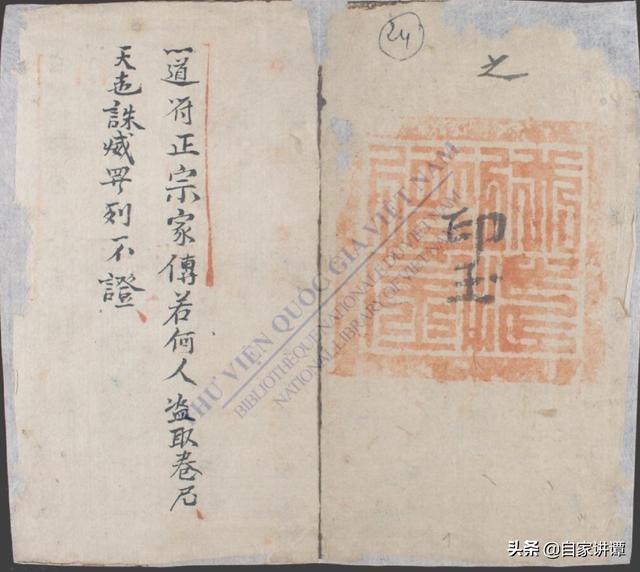 24
之
印玉
道符正宗家傳若何人盜取卷
天誅烕列不證
THƯ VIỆN QUỐC GIA VIỆT NAM
BIBLIOTHÈQUE NATIONALE DU VIETNAM
NATIONAL LIBRARY OF VIETNAM
1
头条 @自家讲谭